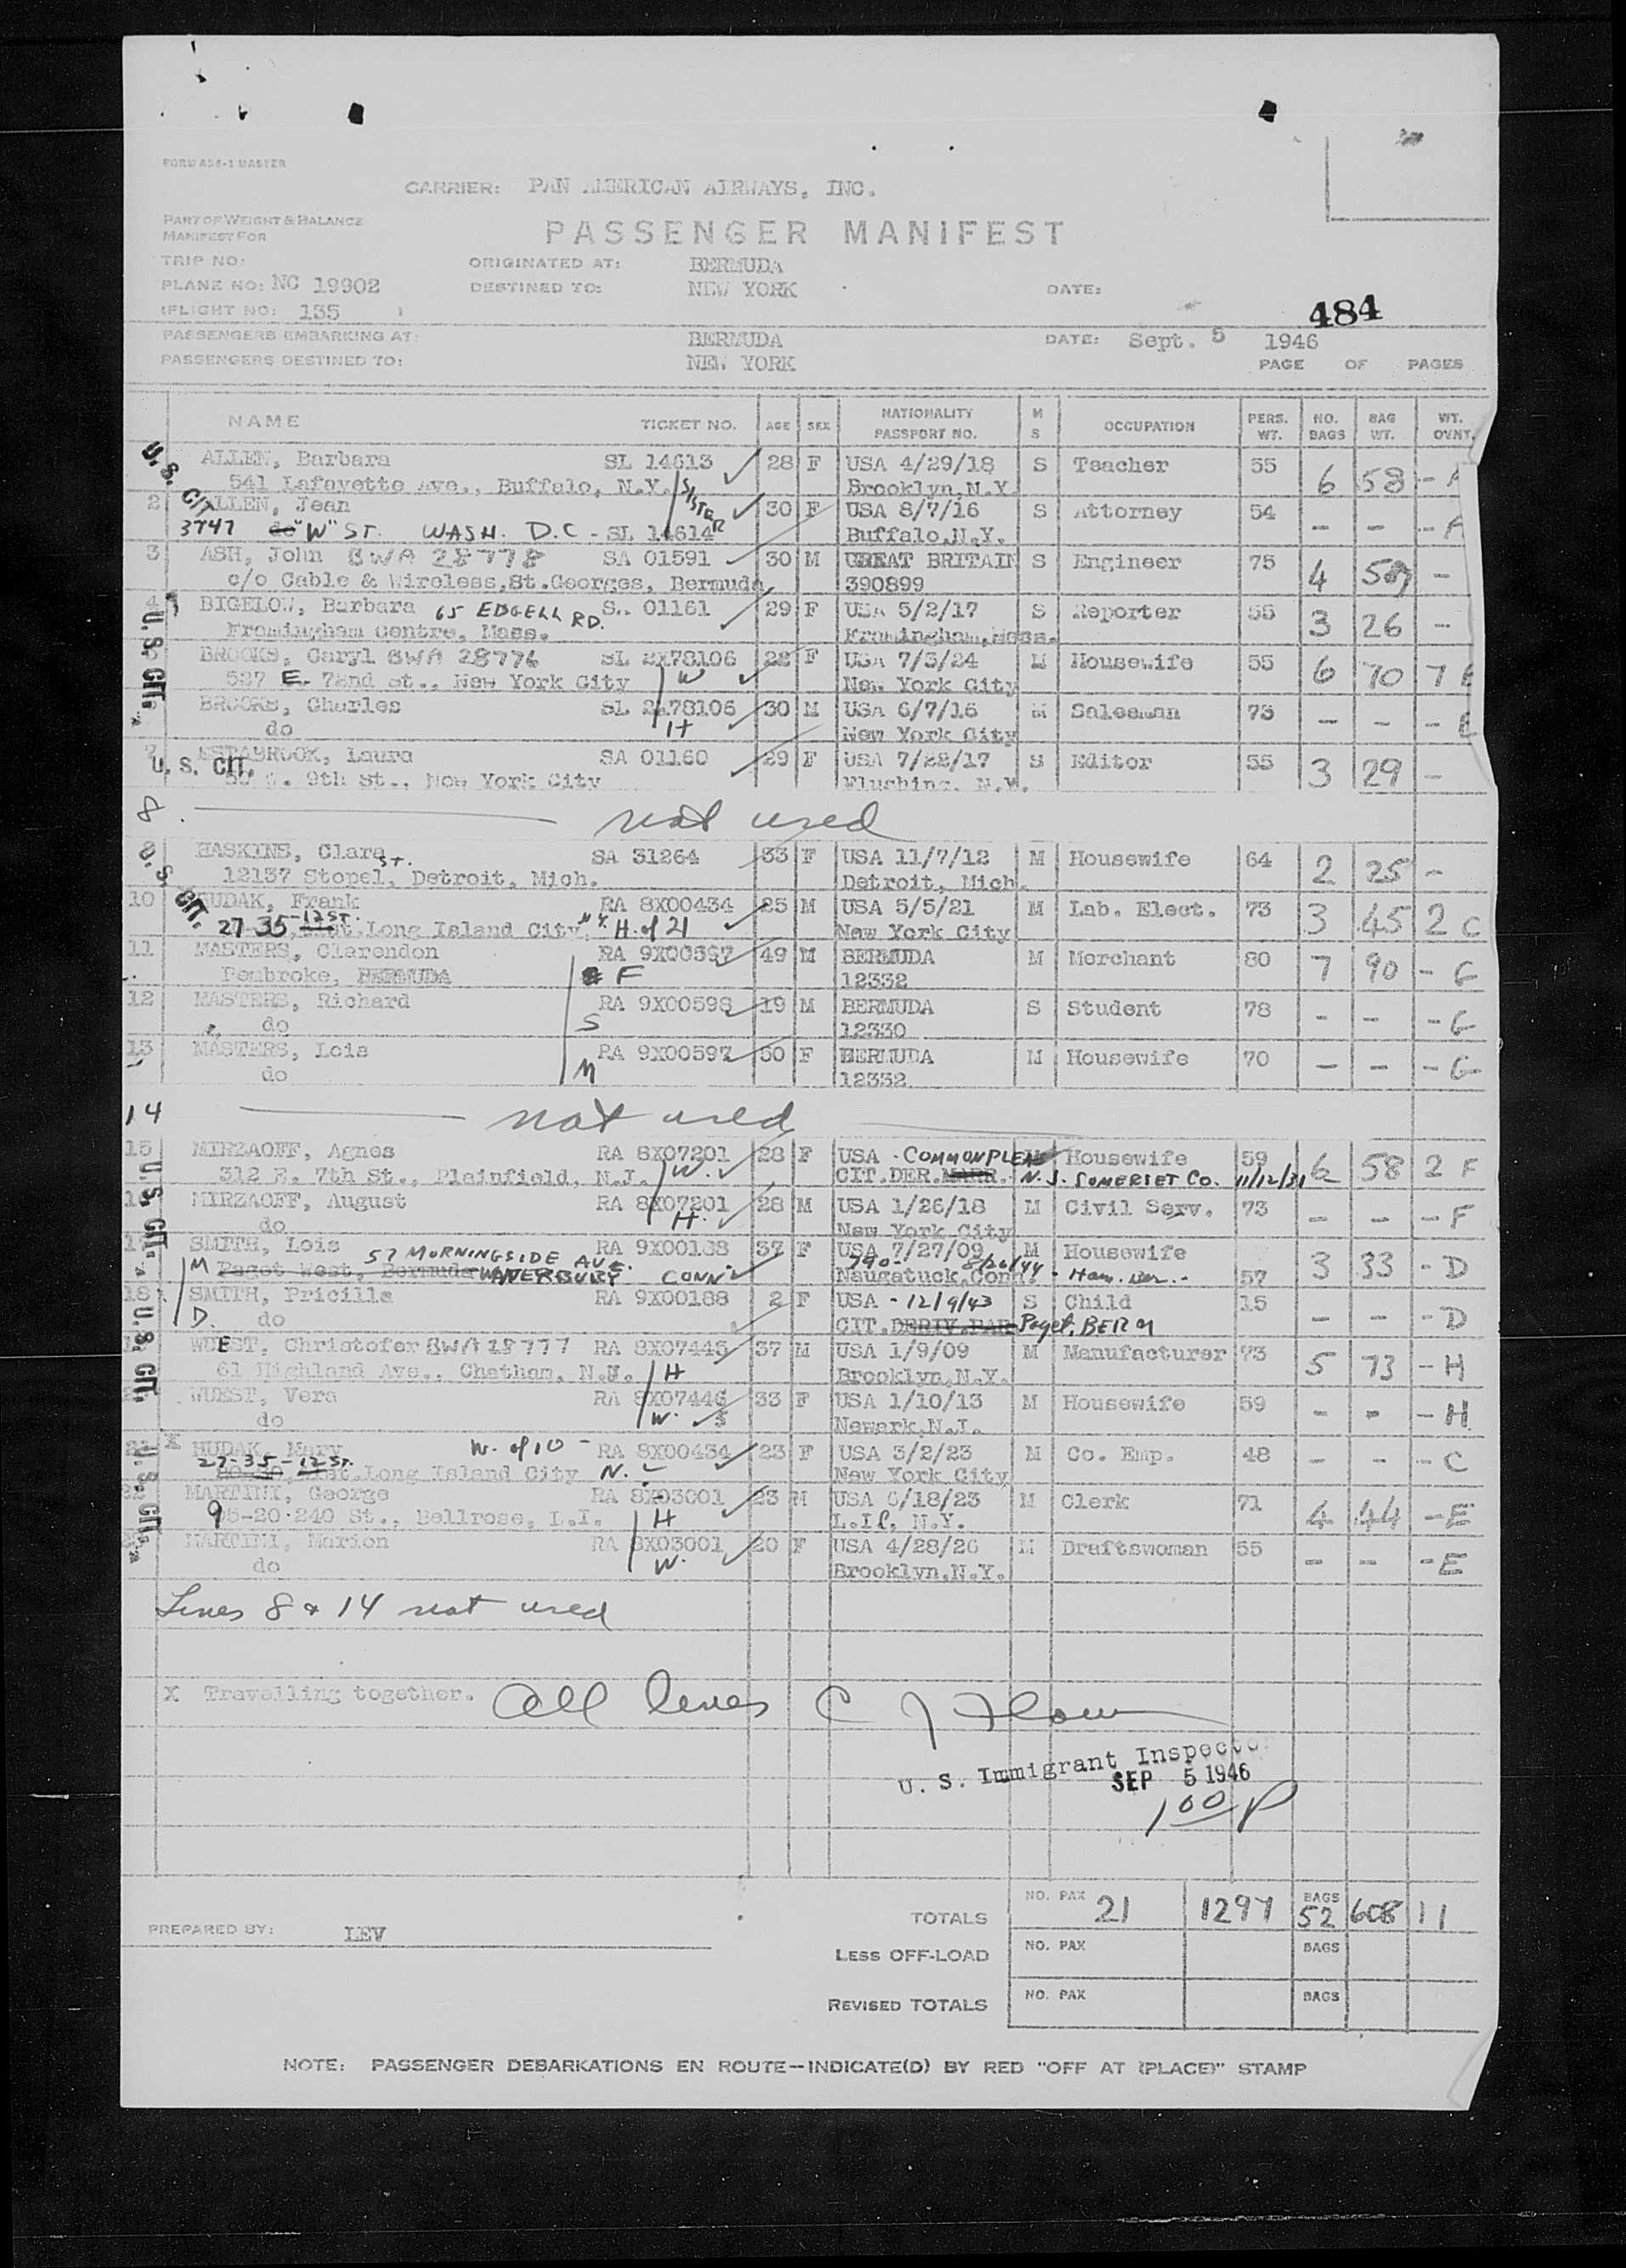 FORM A36-1 MASTER
CARRIER: PAN AMERICAN AIRWAYS, INC.
PART OF WEIGHT & BALANCE
MANIFEST FOR
PASSENGER MANIFEST
TRIP NO: ORIGINATED AT: BERMUDA
PLANE NO: NC 19902 DESTINED TO: NEW YORK DATE:
FLIGHT NO: 135 484
PASSENGERS EMBARKING AT: BERMUDA DATE: Sept. 5 1946
PASSENGERS DESTINED TO: NEW YORK PAGE OF PAGES
NAME TICKET NO. AGE SEX NATIONALITY PASSPORT NO. M S OCCUPATION PERS. WT. NO. BAGS BAG WT. WT. OVWT.
U. S. CIT.
ALLEN, Barbara SL 14613 28 F USA 4/29/18 S Teacher 55 6 58 - A
541 Lafayette Ave., Buffalo, N.Y. SISTER Brooklyn, N.Y.
2 ALLEN, Jean 30 F USA 8/7/16 S Attorney 54 - - - A
3747 do "W" ST. WASH. D.C - SL 14614 Buffalo, N.Y.
3 ASH, John BWA 28778 SA 01591 30 M GREAT BRITAIN S Engineer 75 4 59 -
c/o Cable & Wireless, St. Georges, Bermuda 390899
4 BIGELOW, Barbara 65 EDGELL RD. SA 01161 29 F USA 5/2/17 S Reporter 55 3 26 -
Framingham Centre, Mass. Framingham, Mass.
U. S. CIT.
BROOKS, Caryl BWA 28776 SL 2X78106 22 F USA 7/3/24 M Housewife 55 6 70 7 B
527 E. 72nd St., New York City W New York City
BROOKS, Charles SL 2X78106 30 M USA 6/7/16 M Salesman 73 - - - B
do H New York City
7 ESTABROOK, Laura SA 01160 29 F USA 7/22/17 S Editor 55 3 29 -
U. S. CIT. 9th St., New York City Flushing, N.Y.
8 not used
HASKINS, Clara SA 31264 33 F USA 11/7/12 M Housewife 64 2 25 -
12137 Stopel, ST. Detroit, Mich. Detroit, Mich.
U. S. CIT.
10 HUDAK, Frank RA 8X00434 25 M USA 5/5/21 M Lab. Elect. 73 3 45 2 C
27-35 - 12 ST. Long Island City, N.Y. H. of 21 New York City
11 MASTERS, Clarendon RA 9X00597 49 M BERMUDA M Merchant 80 7 90 - G
Pembroke, BERMUDA F 12332
12 MASTERS, Richard RA 9X00598 19 M BERMUDA S Student 78 - - - G
do S 12330
13 MASTERS, Lois RA 9X00597 50 F BERMUDA M Housewife 70 - - - G
do M 12332
14 not used
15 MIRZAOFF, Agnes RA 8X07201 28 F USA - COMMON PLEAS Housewife 59 6 58 2 F
312 E. 7th St., Plainfield, N.J. W. CIT. DER. MARR. N.J. SOMERSET CO. 11/12/31
U. S. CIT.
MIRZAOFF, August RA 8X07201 28 M USA 1/26/18 M Civil Serv. 73 - - - F
do H. New York City
SMITH, Lois RA 9X00188 37 F USA 7/27/09 M Housewife 57 3 33 - D
M Paget West, Bermuda 57 MORNINGSIDE AVE. WATERBURY CONN Naugatuck, Conn. 790- 8/26/44 - Ham. Ber. -
18 SMITH, Pricilla RA 9X00188 2 F USA - 12/9/43 S Child 15 - - - D
D. do CIT. DERIV. PAR Paget, BERM
U. S. CIT.
WUEST, Christofer BWA 28777 RA 8X07446 37 M USA 1/9/09 M Manufacturer 73 5 73 - H
61 Highland Ave., Chatham, N.J. H Brooklyn, N.Y.
WUEST, Vera RA 8X07446 33 F USA 1/10/13 M Housewife 59 - - - H
do W. Newark, N.J.
21 X HUDAK, Mary W. of 10 - RA 8X00434 23 F USA 3/2/23 M Co. Emp. 48 - - - C
27-35 - 12 ST. Long Island City N. New York City
U. S. CIT.
22 MARTINI, George RA 8X03001 23 M USA 6/18/23 M Clerk 71 4 44 - E
95-20-240 St., Bellrose, L.I. H L.I.C. N.Y.
MARTINI, Marion RA 8X03001 20 F USA 4/28/26 M Draftswoman 55 - - - E
do W. Brooklyn, N.Y.
Lines 8 & 14 not used
X Travelling together. All lines
U. S. Immigrant Inspector
SEP 5 1946
1 00 P
TOTALS NO. PAX 21 1297 BAGS 52 608 11
PREPARED BY: LEV
LESS OFF-LOAD NO. PAX BAGS
REVISED TOTALS NO. PAX BAGS
NOTE: PASSENGER DEBARKATIONS EN ROUTE--INDICATE(D) BY RED "OFF AT (PLACE)" STAMP